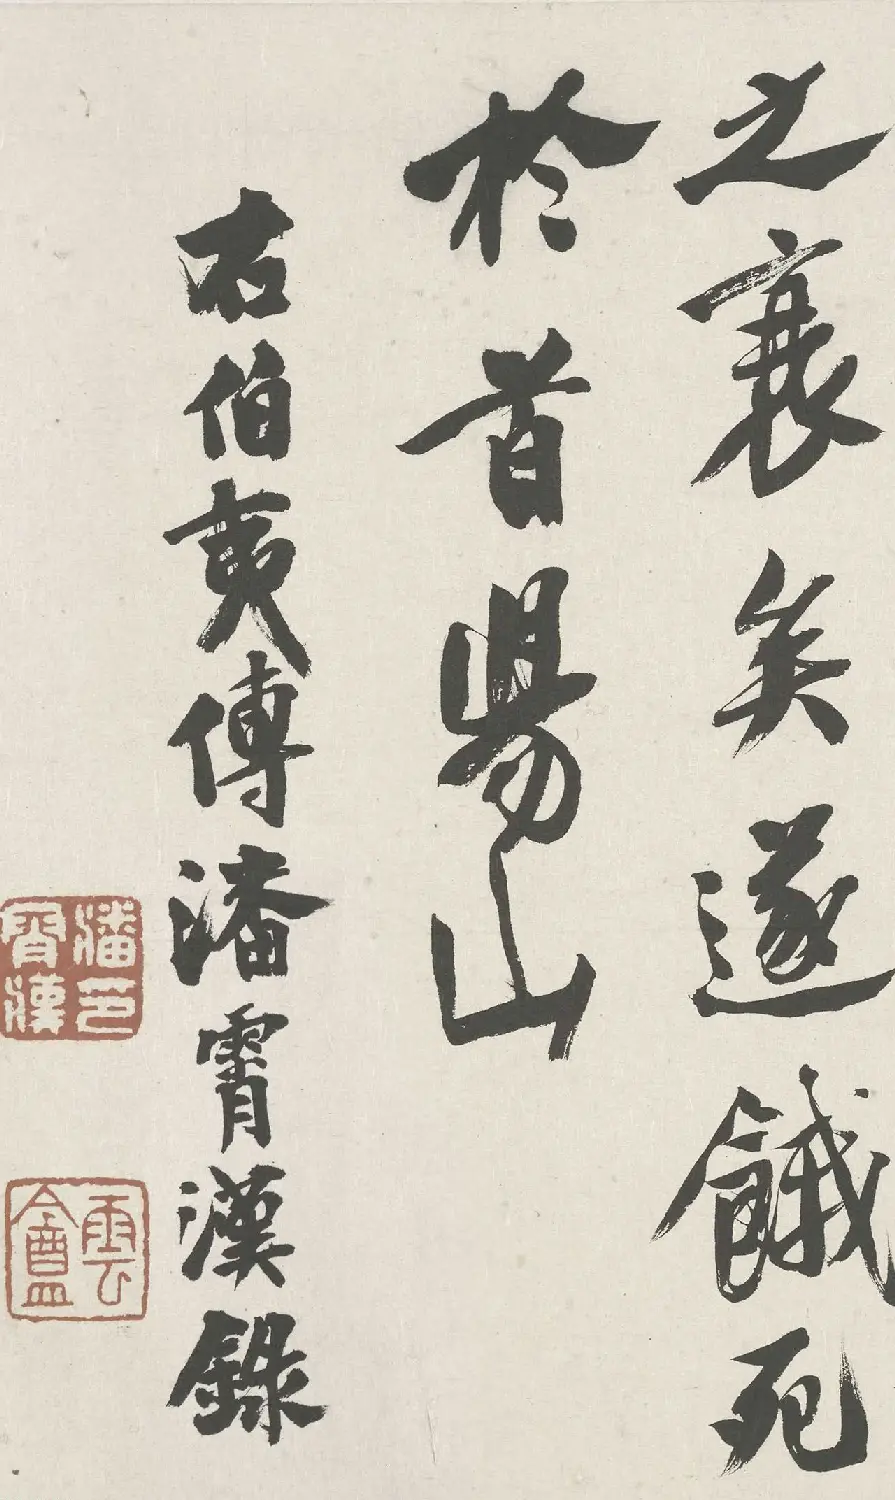 之衰矣遂餓死
於首陽山
右伯夷傳潘霄漢錄
潘印
霄漢
雲盦